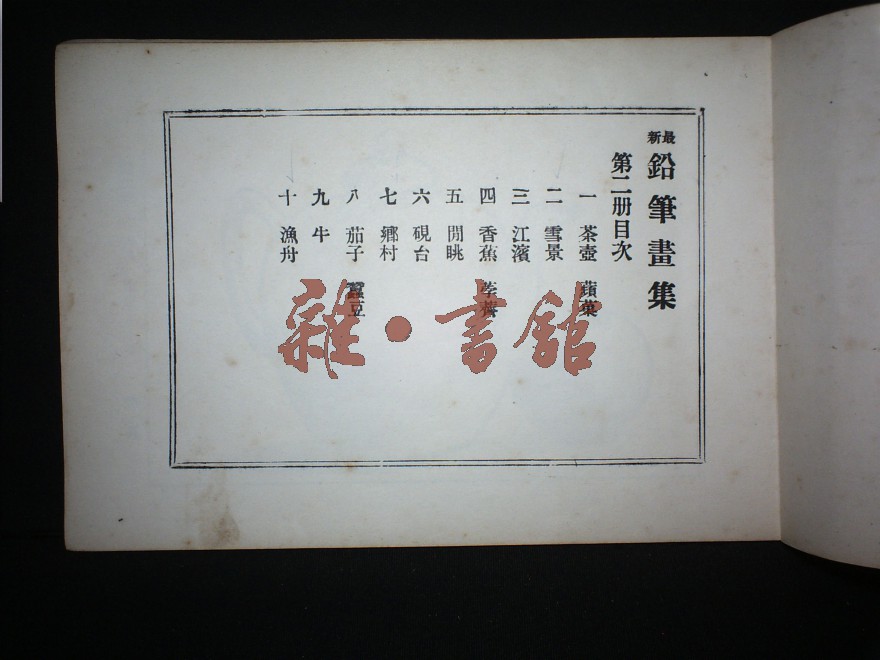 最新 鉛筆畫集
第二册目次
一 茶壺 蘋菓
二 雪景
三 江濱
四 香蕉 荸薺
五 閒眺
六 硯台
七 鄉村
八 茄子 蠶豆
九 牛
十 漁舟
雜·書舘